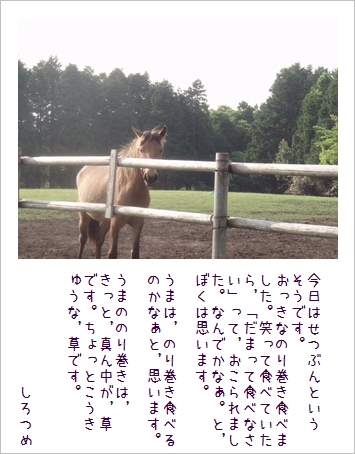 今日はせつぶんという
そうです。
おっきなのり巻き食べま
した。笑って食べていた
ら、「だまって食べなさ
い」って、おこられまし
た。なんでかなぁ。と、
ぼくは思います。
うまは、のり巻き食べる
のかなあと、思います。
うまののり巻きは、
きっと、真ん中が、草
です。ちょっとこうき
ゅうな、草です。
しろつめ